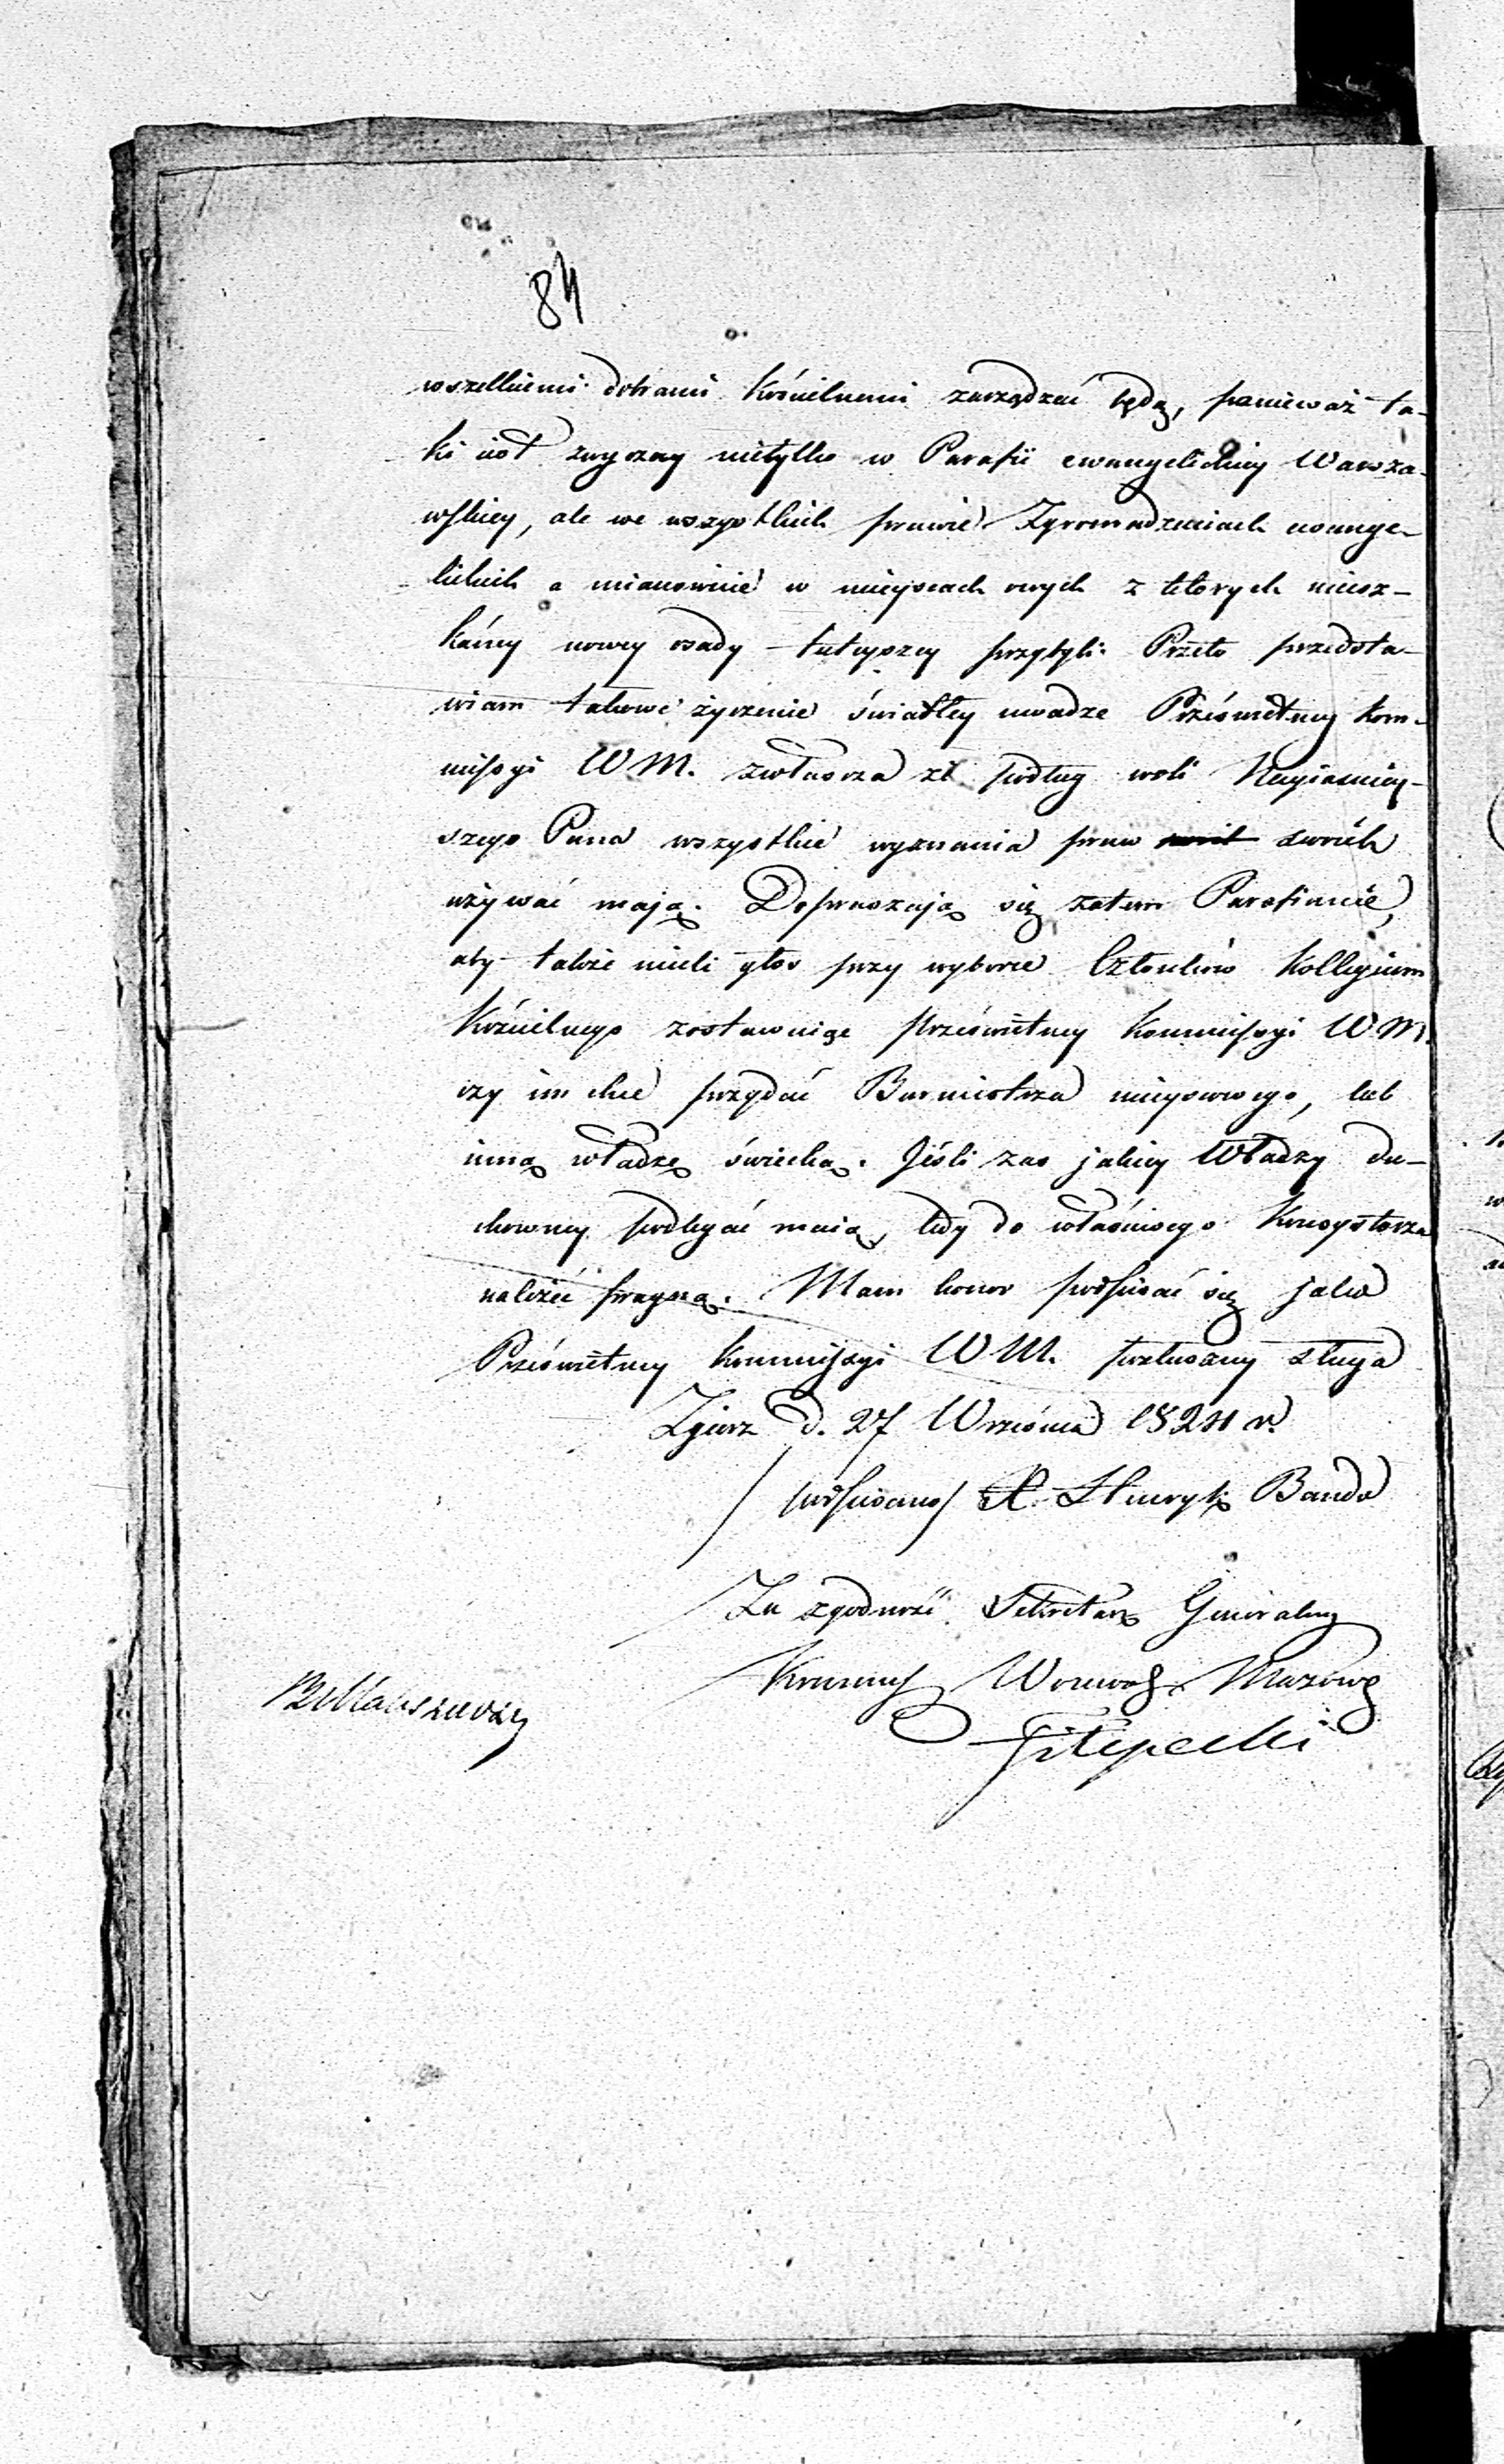 84
wszelkiemi dobrami kościelnemi zarządzać będą, ponieważ ta-
ki iest zwyczay nietylko w Parafii ewangelickiey Warsza-
wskiey, ale we wszystkich prawie Zgromadzeniach ewange-
lickich a mianowicie w mieyscach owych z których miesz-
kańcy nowey osady tuteyszey przybyli. Przeto przedsta-
wiam takowe życzenie światłey uwadze Prześwietney Kom-
missyi W M. zwłaszcza że podług woli Nayiaśniey-
szego Pana wszystkie wyznania praw swoich
używać mają. Dopraszają się zatem Parafianie,
aby także mieli głos przy wyborze Członków Kollegium
Kościelnego zostawuiąc Prześwietney Kommissyi W M.
czy im chce przydać Burmistrza mieyscowego, lub
inną władzę świecką. Jeśli zaś jakiey Władzy du-
chowney podlegać maią, tedy do właściwego Konsystorza
należeć pragną. Mam honor podpisać się jako
Prześwietney Kommissyi W M. posłuszny sługa
Zgierz d. 27 Września 1824 r.
/podpisano/ X. Henryk Bando
Za zgodność Sekretarz Generalny
Kommissyi Woiewodz. Mazow